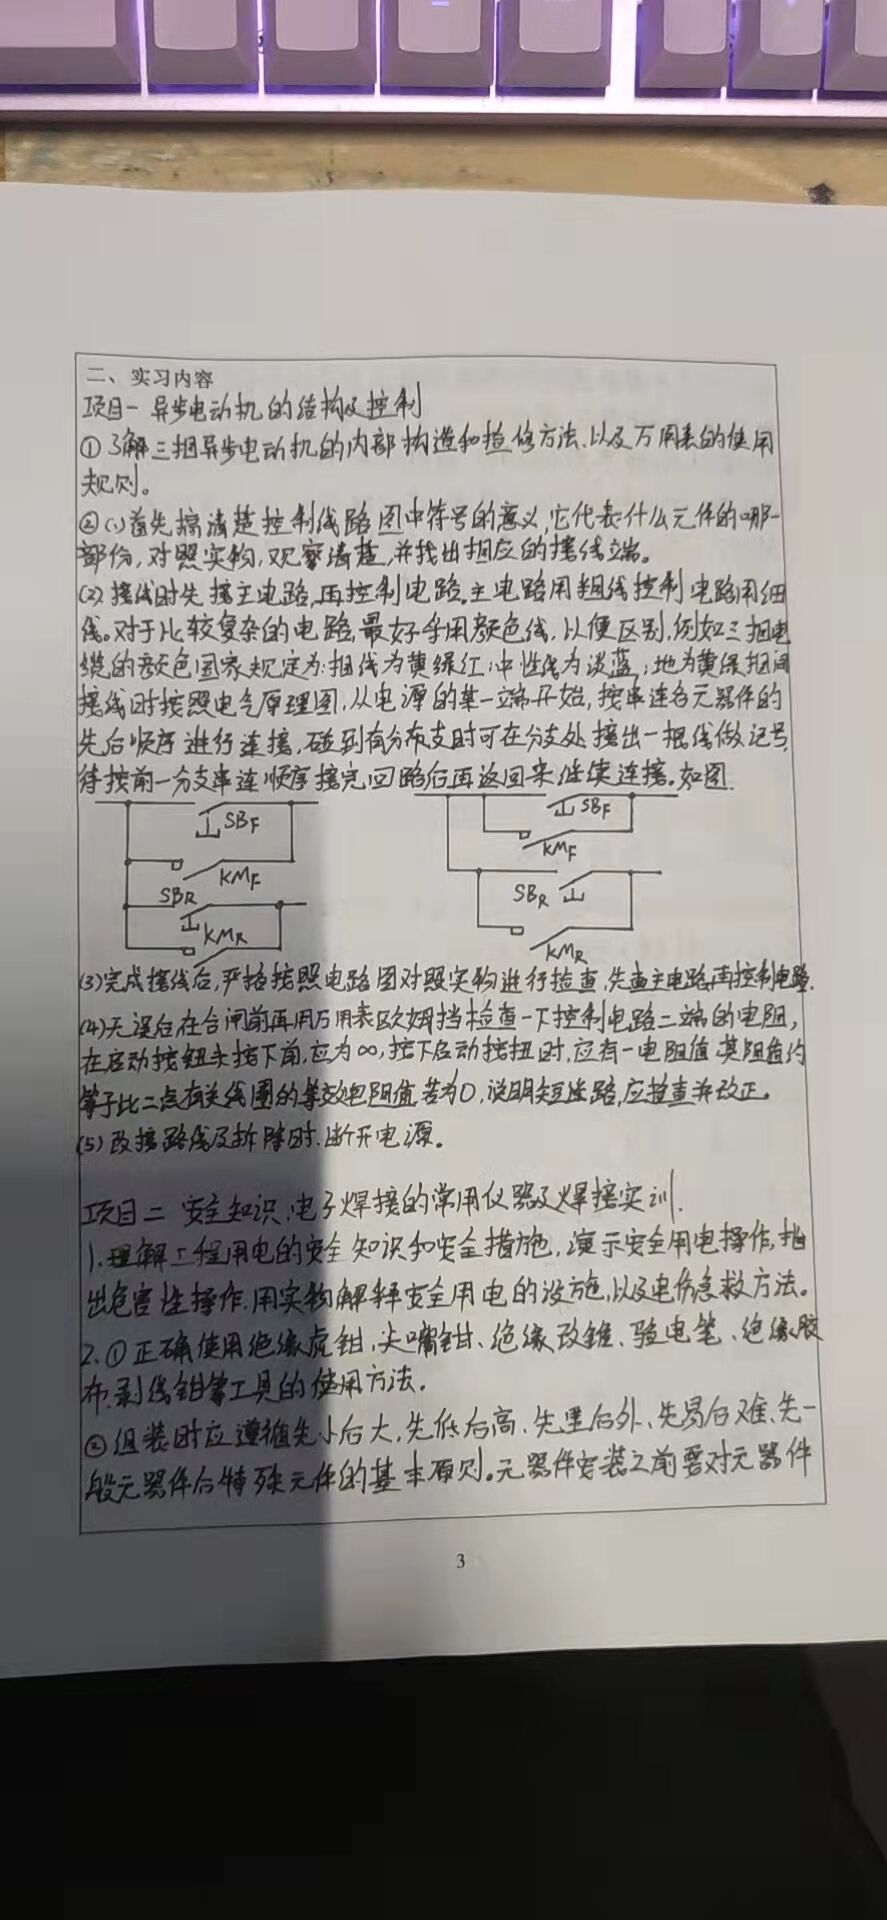 二、实习内容
项目一 异步电动机的结构及控制
①了解三相异步电动机的内部构造和检修方法、以及万用表的使用
规则。
②(1)首先搞清楚控制线路图中符号的意义,它代表什么元件的哪一
部份,对照实物,观察清楚,并找出相应的接线端。
(2)接线时先接主电路,再控制电路。主电路用粗线控制电路用细
线。对于比较复杂的电路,最好采用颜色线,以便区别,例如三相电
缆的颜色国家规定为:相线为黄绿红;中性线为淡蓝;地为黄绿相间
接线时按照电气原理图,从电源的某一端开始,按串连各元器件的
先后顺序进行连接,碰到有分布支时可在分支处接出一根线做记号,
待按前一分支串连顺序接完回路后再返回来继续连接。如图.
SBF
KMF
SBR
KMR
SBF
KMF
SBR
KMR
(3)完成接线后,严格按照电路图对照实物进行检查,先查主电路,再控制电路.
(4)无误后在合闸前再用万用表欧姆挡检查一下控制电路二端的电阻,
在启动按钮未按下前,应为∞,按下启动按扭时,应有一电阻值,其阻值约
等于比二点有关线圈的等效电阻值,若为0,说明短路,应检查并改正。
(5)改接路线及拆除时,断开电源。
项目二 安全知识、电子焊接的常用仪器及焊接实训.
1.理解工程用电的安全知识和安全措施,演示安全用电操作,指
出危害性操作.用实物解释安全用电的设施,以及电伤急救方法。
2.①正确使用绝缘虎钳、尖嘴钳、绝缘改锥、验电笔、绝缘胶
布、剥线钳等工具的使用方法。
②组装时应遵循先小后大,先低后高、先里后外、先易后难、先一
般元器件后特殊元件的基本原则。元器件安装之前要对元器件
3